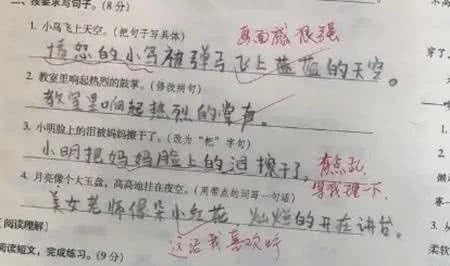 、按要求写句子。(8分)
1. 小鸟飞上天空。(把句子写具体)
画面感 很强
愤怒的小鸟被弹弓飞上蓝蓝的天空。
2. 教室里响起热烈的鼓掌。(修改病句)
教室里响起热烈的掌声。
3. 小明脸上的泪被妈妈擦干了。(改为“把”字句)
小明把妈妈脸上的泪擦干了。
有点乱
容我理一下
4. 月亮像个大玉盘,高高地挂在夜空。(用带点的词写一句话)
美女老师像朵小红花,灿烂的开在讲台。
这话我喜欢听
[阅读理解]
阅读短文,完成练习。(9分)
穿了
2.
柔软